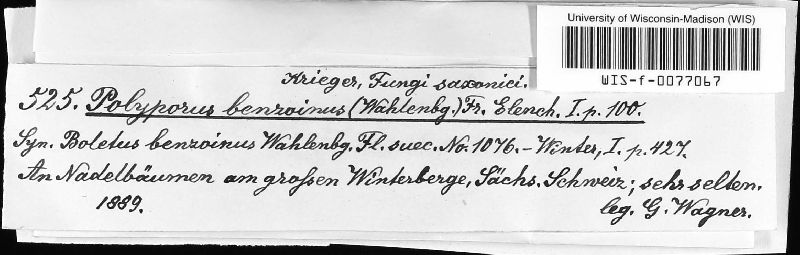 University of Wisconsin-Madison (WIS)
WIS-f-0077067
Krieger, Fungi saxonici.
525. Polyporus benzoinus (Wahlenbg.) Fr. Elench. I. p. 100.
Syn. Boletus benzoinus Wahlenbg. Fl. suec. No. 1076. - Winter, I. p. 427.
An Nadelbäumen am großen Winterberge, Sächs. Schweiz; sehr selten.
1889.
leg. G. Wagner.